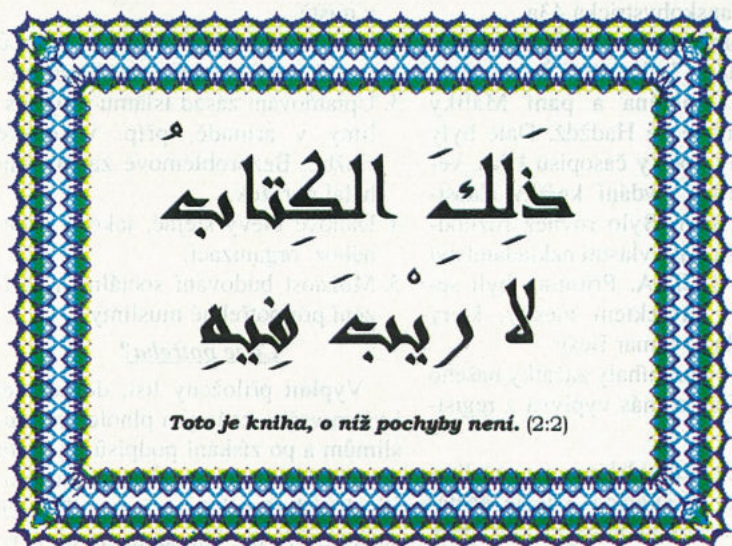 ذَٰلِكَ الكِتَابُ
لَا رَيْبَ فِيهِ
Toto je kniha, o níž pochyby není. (2:2)